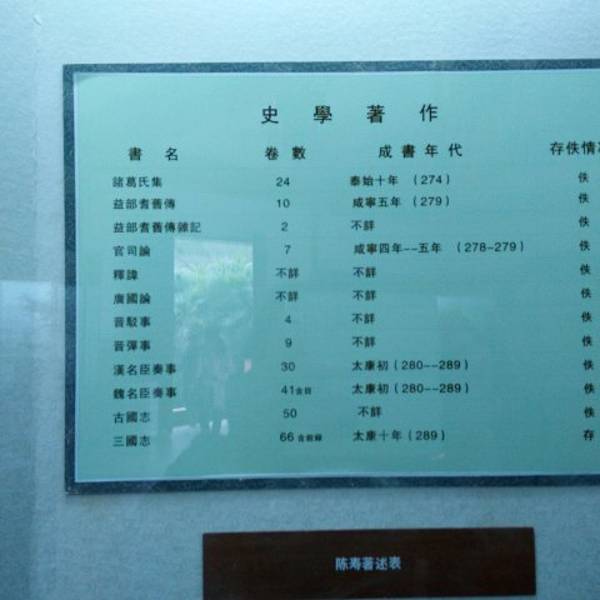 史學著作
書名 卷數 成書年代 存佚情
諸葛氏集 24 泰始十年 (274) 佚
益部耆舊傳 10 咸寧五年 (279) 佚
益部耆舊傳雜記 2 不詳 佚
官司論 7 咸寧四年--五年 (278-279) 佚
釋諱 不詳 不詳 佚
廣國論 不詳 不詳 佚
晋駁事 4 不詳 佚
晋彈事 9 不詳 佚
漢名臣奏事 30 太康初(280--289) 佚
魏名臣奏事 41含目 太康初(280--289) 佚
古國志 50 不詳 佚
三國志 66含敘録 太康十年(289) 存
陈寿著述表